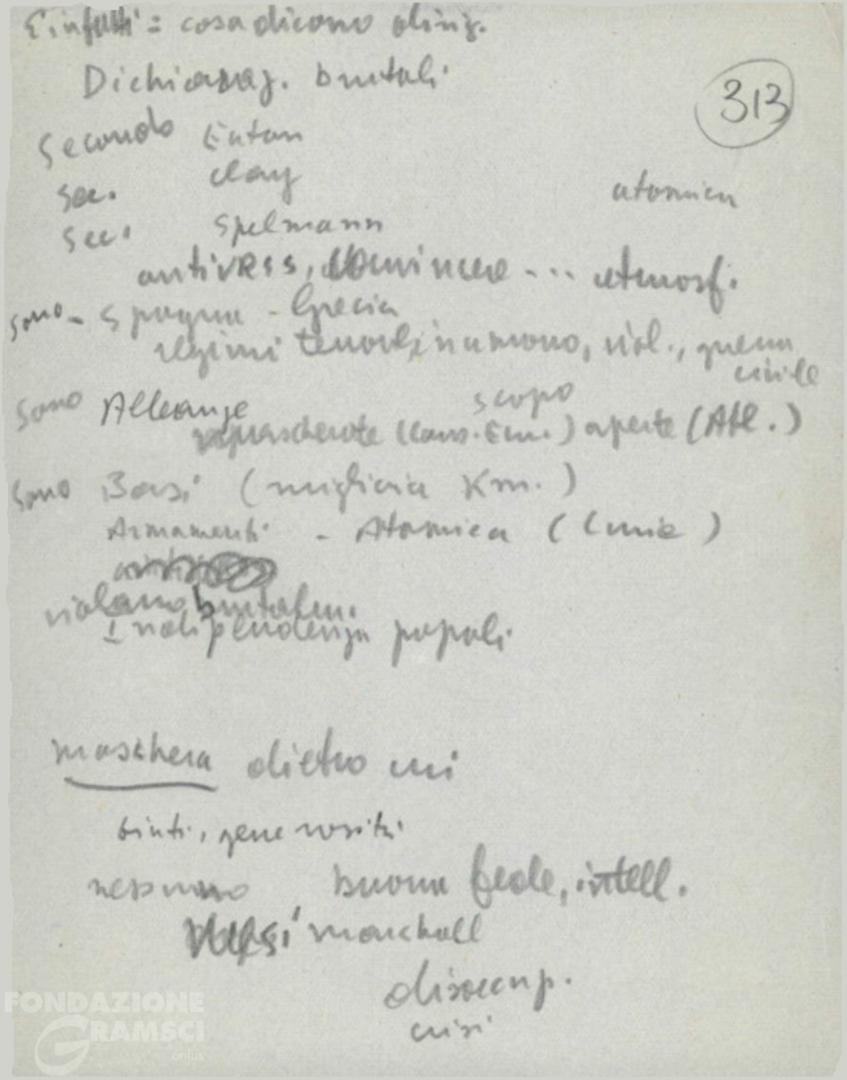 E infatti: cosa dicono dirig.
Dichiaraz. brutali
313
Secondo Eaton
Sec. Clay
atomica
Sec. Spelmann
antiurss, cominciare ... atmosf.
sono - Spagna - Grecia
regimi terrore, viol., guerra
civile
Sono Alleanze
scopo
mascherate (Cons. Eur.) aperte (Atl.)
Sono Basi (migliaia Km.)
Armamenti - Atomica (Cina)
violano brutalm.
Indipendenza popoli
maschera dietro cui
aiuti, generosità
nessuno buona fede, intell.
Paesi marshall
disoccup.
crisi
FONDAZIONE
GRAMSCI
onlus